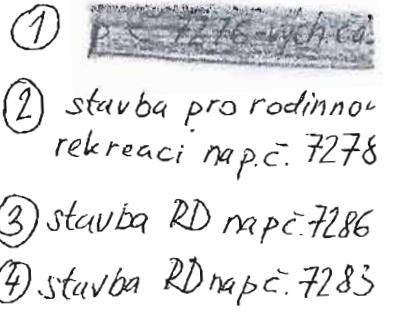 ① p.č. 7276-vých.čá.
② stavba pro rodinnou
rekreaci na p.č. 7278
③ stavba RD na p č. 7286
④ stavba RD na p č. 7283